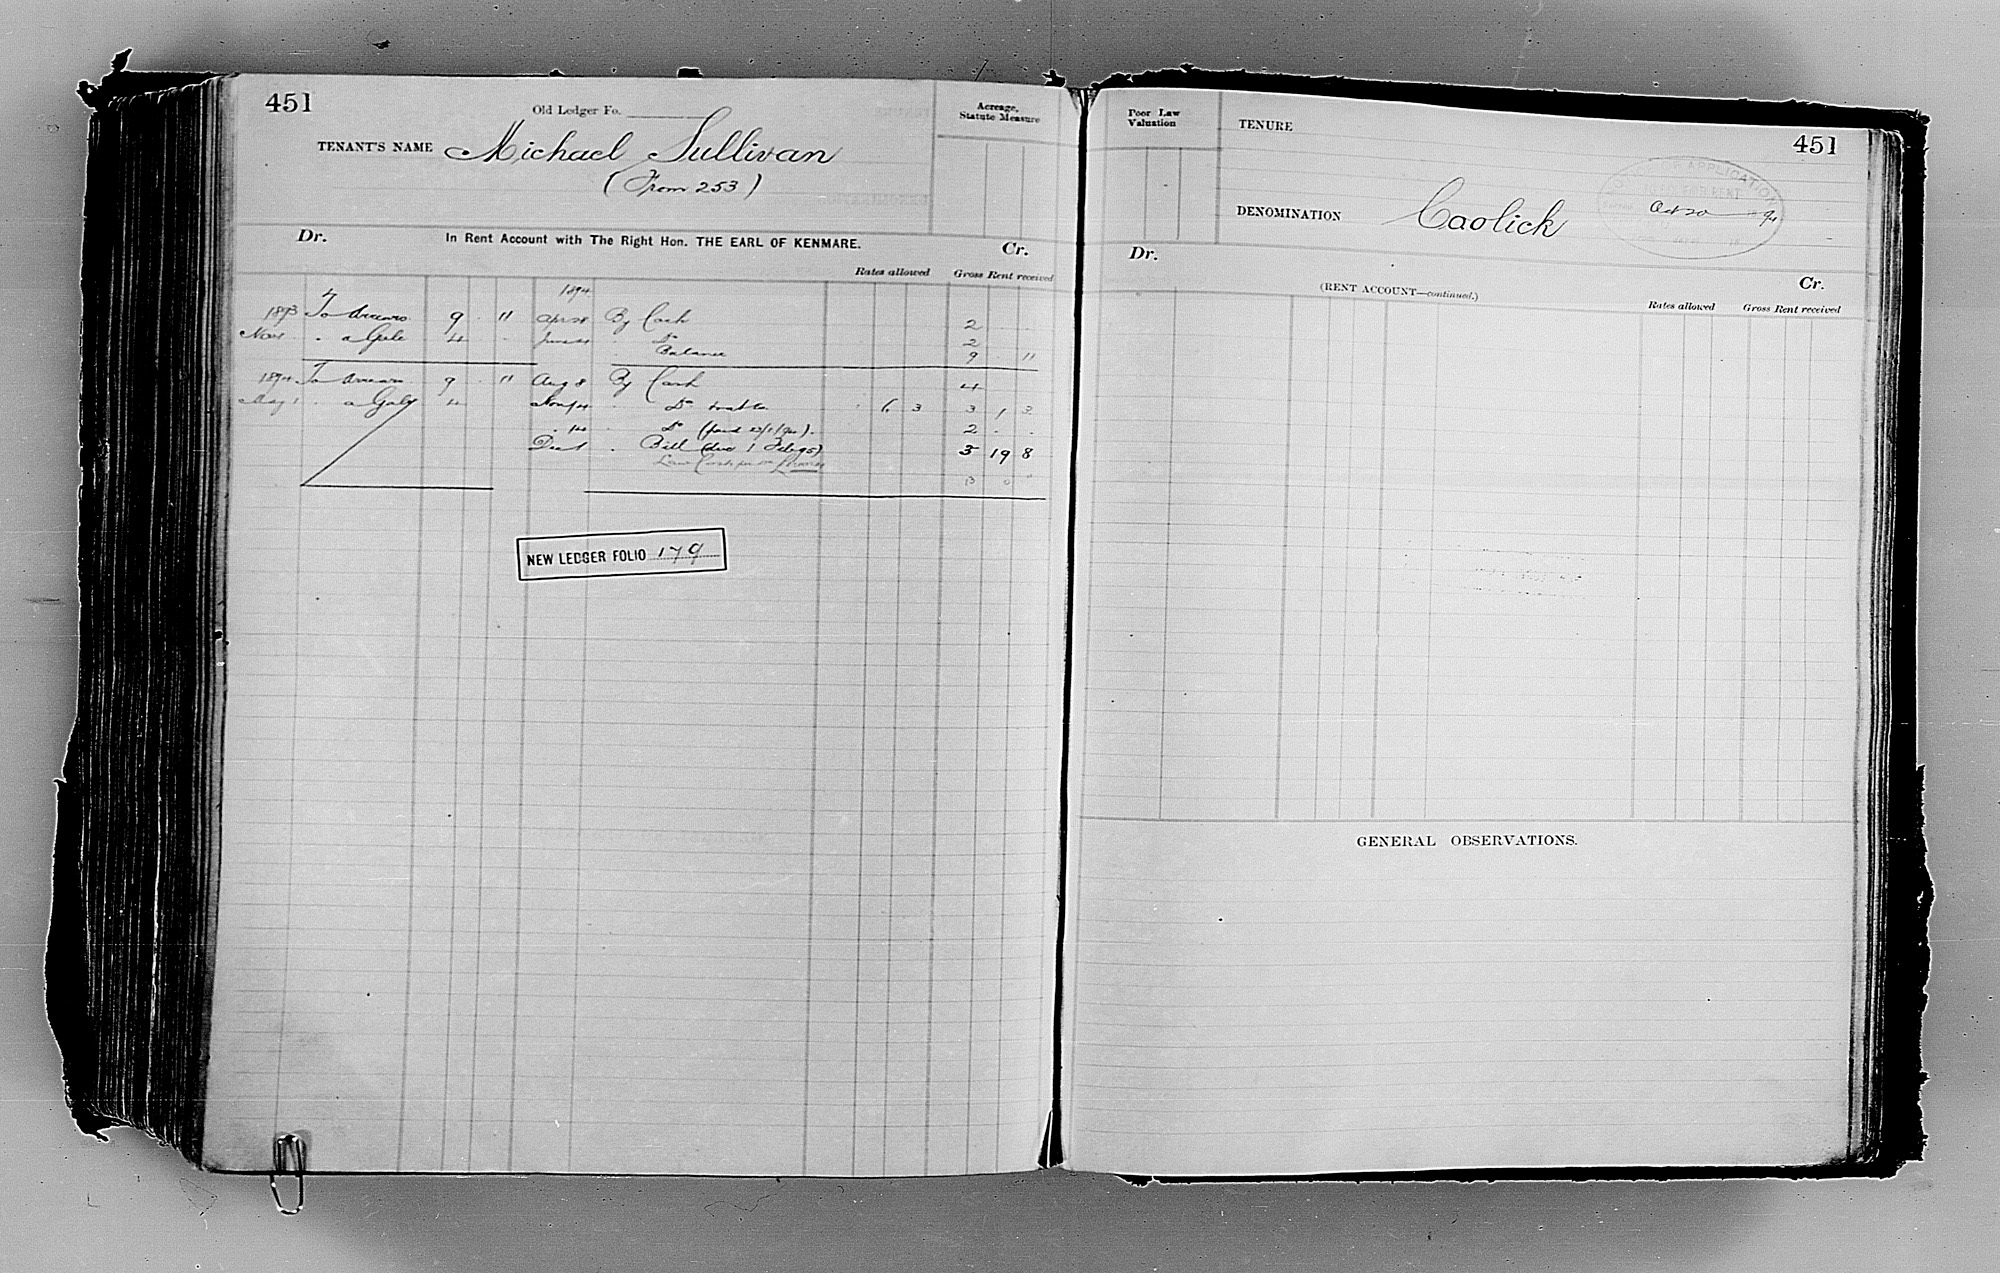 451
Old Ledger Fo.
TENANT'S NAME Michael Sullivan
(From 253)
Acreage,
Statute Measure
Dr. In Rent Account with The Right Hon. THE EARL OF KENMARE. Cr.
Rates allowed Gross Rent received
1894
1893 To Arrears 9 . 11 Apr 28 By Cash 2 . .
Nov 1 . a Gale 4 . June 4 . Do 2
Balance 9 . 11
1894 To Arrears 9 . 11 Aug 8 By Cash 4
May 1 . a Gale 4 Nov 14 . Do 6 3 3 1 3
. 14 . Do 2 . .
. Bill (due 1 Feb 95) 5 19 8
13 0
NEW LEDGER FOLIO 179
Poor Law
Valuation
TENURE
451
APPLICATION
FAIR RENT
Oct 20 94
DENOMINATION Caolick
Dr. Cr.
(RENT ACCOUNT—continued.)
Rates allowed Gross Rent received
GENERAL OBSERVATIONS.